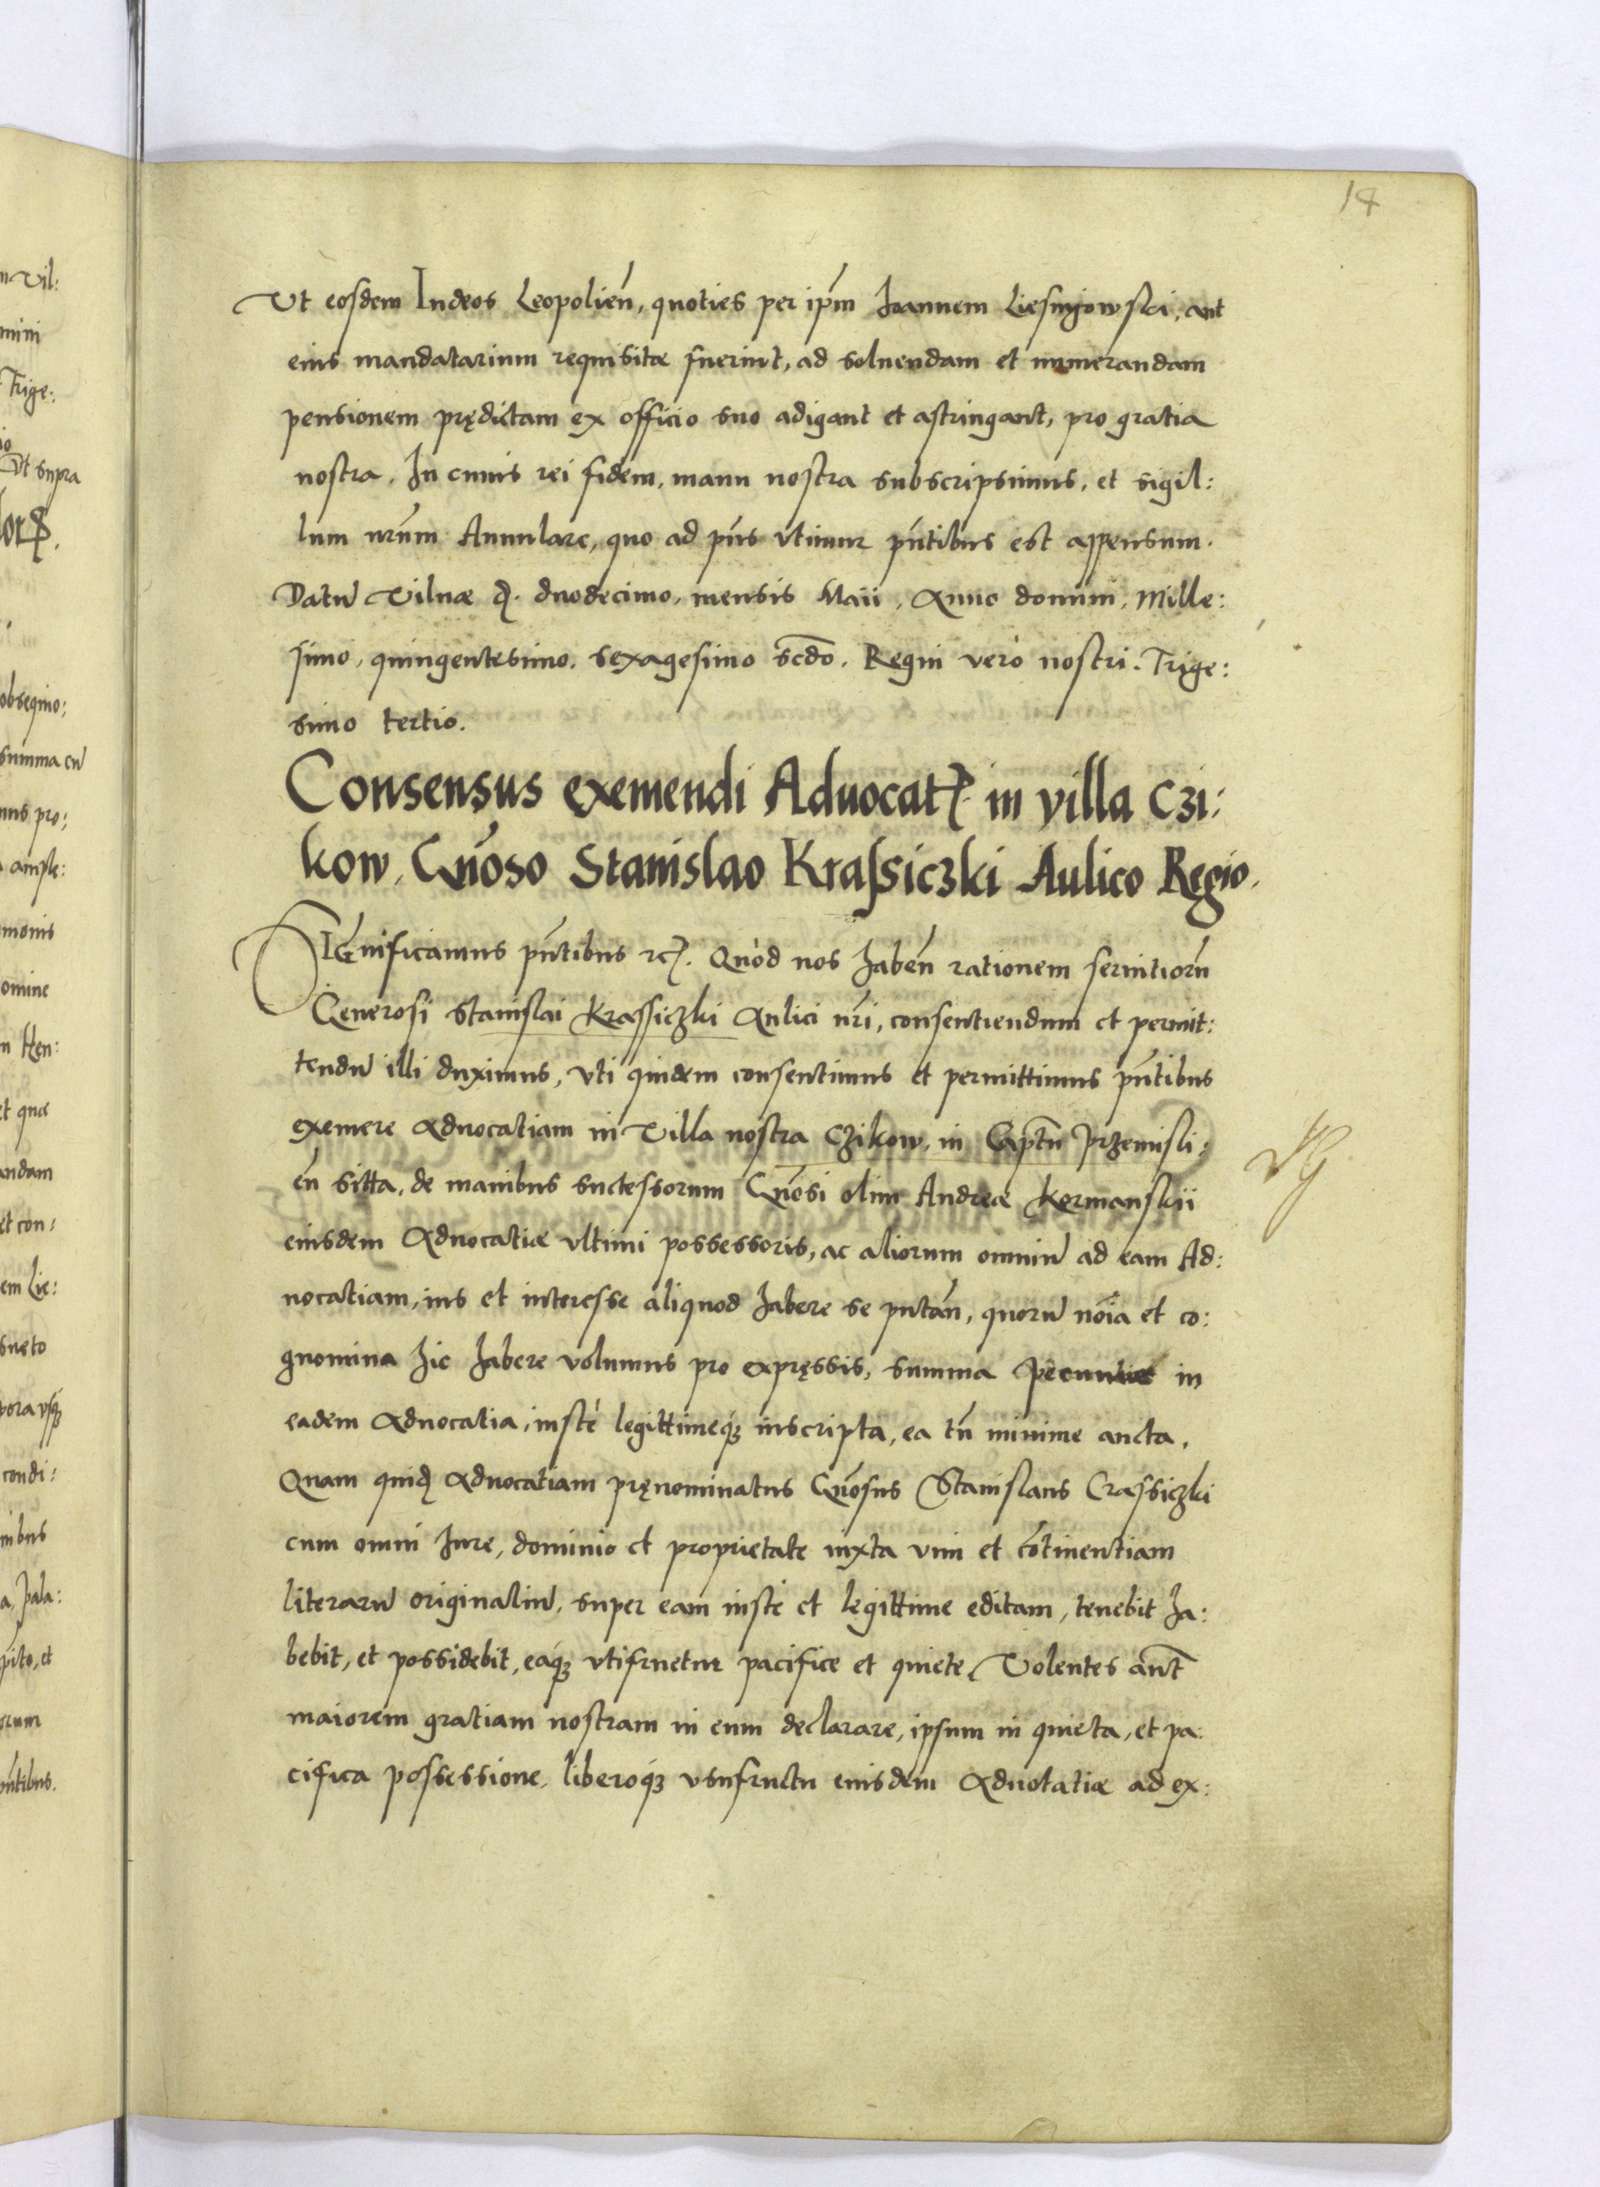 14
Vt eosdem Iudeos Leopolien̄, quoties per ip̄m Ioannem Liesnyowski, aut
eius mandatarium requisitæ fuerint, ad soluendam et numerandam
pensionem prędictam ex officio suo adigant et astringant, pro gratia
nostra. In cuius rei fidem, manu nostra subscripsimus, et sigil:
lum nr̄um Annulare, quo ad pn̄s vtimur pn̄tibus est appensum.
Datū Vilnæ d. duodecimo, mensis Maii, Anno domini, Mille:
simo, quingentesimo. sexagesimo scd̄o. Regni verò nostri. Trige:
simo tertio.
Consensus exemendi Aduocat. in villa Czi:
kow, Gn̄oso Stanislao Krassiczki Aulico Regio.
SIGnificamus pn̄tibus etc. Quòd nos haben̄ rationem seruitiorū
Generosi Stanislai Krassiczki Aulici nr̄i, consentiendum et permit:
tendū illi duximus, vti quidem consentimus et permittimus pn̄tibus
exemere Aduocatiam in Villa nostra Czikow, in Capt̄u Przemisli:
en̄ sitta, de manibus successorum Gn̄osi olim Andreæ Kormanskii
eiusdem Aduocatiæ vltimi possessoris, ac aliorum omniū ad eam Ad:
uocatiam, ius et interesse aliquod habere se putan̄, quorū nōia et co:
gnomina hic habere volumus pro expręssis, summa pecuniæ in
eadem Aduocatia, iustè legittimeq́ꝫ inscripta, ea tn̄ minime aucta.
Quam quid̄ Aduocatiam pręnominatus Gn̄osus Stanislaus Crassiczki
cum omni Iure, dominio et proprietate iuxta vim et cōtinentiam
literarū originaliū, super eam iustè et legittime editam, tenebit ha:
bebit, et possidebit, eaq́ꝫ vtifruetur pacifice et quiete, Volentes aūt
maiorem gratiam nostram in eum declarare, ipsum in quieta, et pa:
cifica possessione, liberoq́ꝫ vsufructu eiusdem Aduocatiæ ad ex: